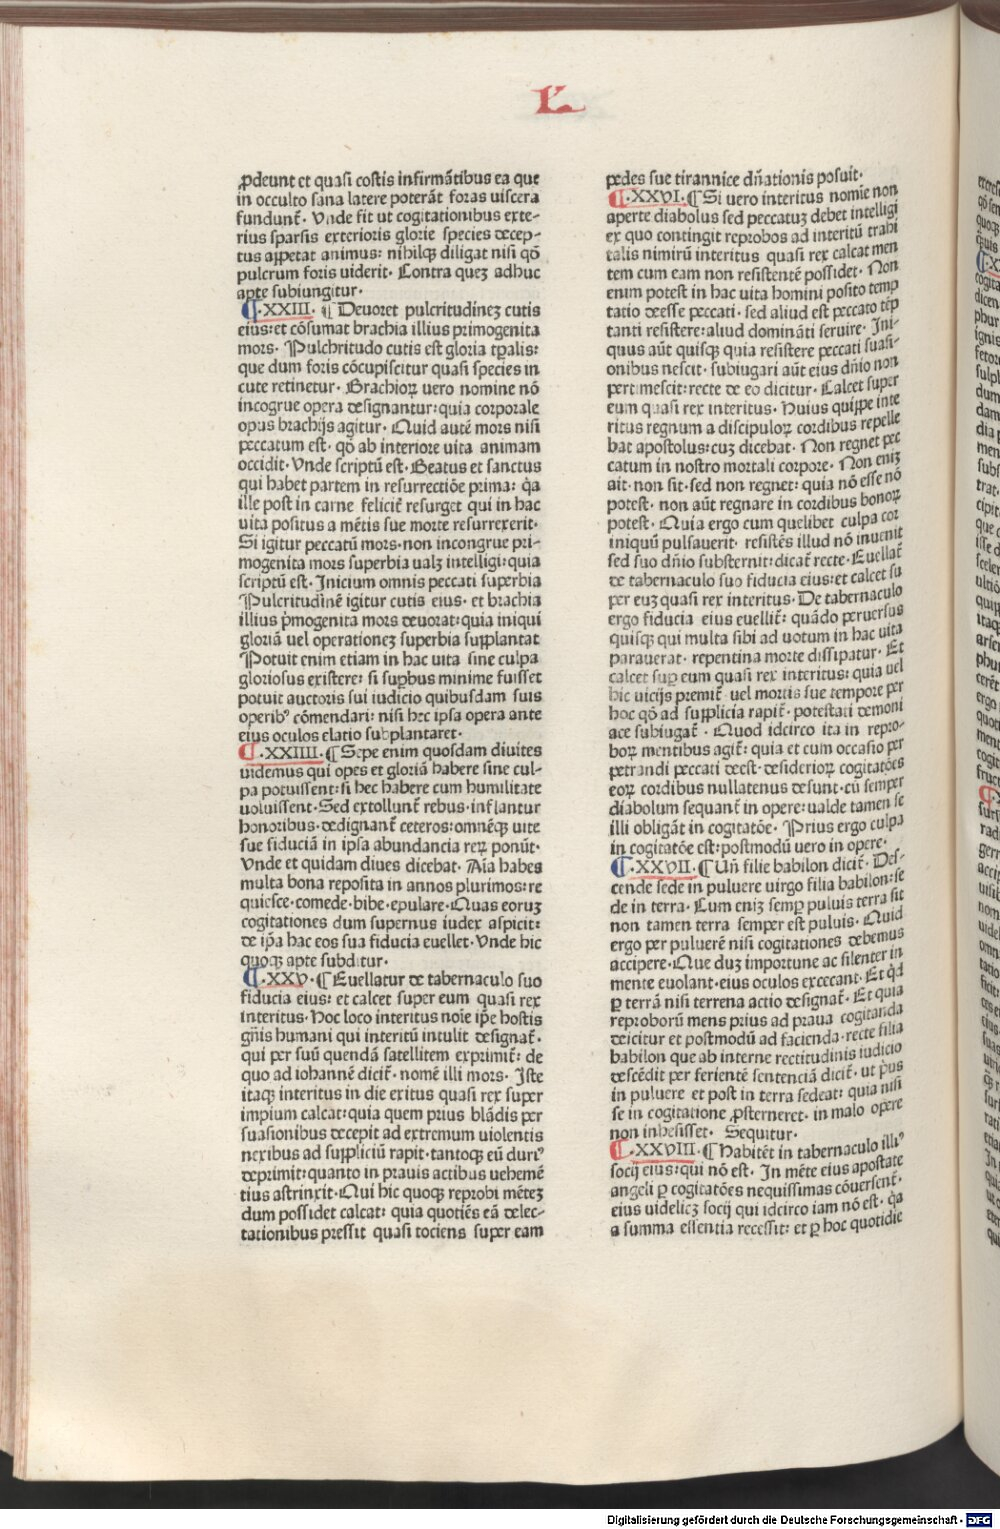 L
ꝓdeunt et quasi costis infirmātibus ea que
in occulto sana latere poterāt foras uiscera
fundunt̄. Vnde fit ut cogitationibus exte-
rius sparsis exterioris glorie species decep-
tus appetat animus: nihilqꝫ diligat nisi qō
pulcrum foris uiderit. Contra queꝫ adhuc
apte subiungitur.
¶.XXIII. ¶ Deuoret pulcritudineꝫ cutis
eius: et cōsumat brachia illius primogenita
mors. Pulchritudo cutis est gloria tp̄alis:
que dum foris cōcupiscitur quasi species in
cute retinetur. Brachioꝝ uero nomine nō
incogrue opera designantur: quia corporale
opus brachijs agitur. Quid autē mors nisi
peccatum est. qō ab interiore uita animam
occidit. Vnde scriptū est. Beatus et sanctus
qui habet partem in resurrectiōe prima: q̄a
ille post in carne felicit̄ resurget qui in hac
uita positus a mētis sue morte resurrexerit.
Si igitur peccatū mors. non incongrue pri-
mogenita mors superbia ualꝫ intelligi: quia
scriptū est. Inicium omnis peccati superbia
Pulcritudinē igitur cutis eius. et brachia
illius p̄mogenita mors deuorat: quia iniqui
gloriā uel operationeꝫ superbia supplantat
Potuit enim etiam in hac uita sine culpa
gloriosus existere: si suꝑbus minime fuisset
potuit auctoris sui iudicio quibusdam suis
operibꝰ cōmendari: nisi hec ipsa opera ante
eius oculos elatio supplantaret.
¶.XXIIII. ¶ Sepe enim quosdam diuites
uidemus qui opes et gloriā habere sine cul-
pa potuissent: si hec habere cum humilitate
uoluissent. Sed extollunt̄ rebus. inflantur
honoribus. dedignant̄ ceteros: omnēqꝫ uite
sue fiduciā in ipsa abundancia reꝝ ponūt.
Vnde et quidam diues dicebat. Aīa habes
multa bona reposita in annos plurimos: re
quiesce. comede. bibe. epulare. Quas eoruꝫ
cogitationes dum supernus iudex aspicit:
de ip̄a hac eos sua fiducia euellet. Vnde hic
quoqꝫ apte subditur.
¶.XXV. ¶ Euellatur de tabernaculo suo
fiducia eius: et calcet super eum quasi rex
interitus. Hoc loco interitus noīe ip̄e hostis
gn̄is humani qui interitū intulit designat̄.
qui per suū quendā satellitem exprimit̄: de
quo ad iohannē dicit̄. nomē illi mors. Iste
itaqꝫ interitus in die exitus quasi rex super
impium calcat: quia quem prius blādis per
suasionibus decepit ad extremum uiolentis
nexibus ad suppliciū rapit. tantoqꝫ eū duriꝰ
deprimit: quanto in prauis actibus uehemē
tius astrinxit. Qui hic quoqꝫ reprobi mēteꝫ
dum possidet calcat: quia quotiēs eā delec-
tationibus pressit quasi tociens super eam
pedes sue tirannice dn̄ationis posuit.
¶.XXVI. ¶ Si uero interitus nomīe non
aperte diabolus sed peccatuꝫ debet intelligi
ex quo contingit reprobos ad interitū trahi
talis nimirū interitus quasi rex calcat men
tem cum eam non resistentē possidet. Non
enim potest in hac uita homini posito temp
tatio deesse peccati. sed aliud est peccato tēp
tanti resistere: aliud domināti seruire. Ini-
quus aūt quisqꝫ quia resistere peccati suasi-
onibus nescit. subiugari aūt eius dn̄io non
pertimescit: recte de eo dicitur. Calcet super
eum quasi rex interitus. Huius quippe inte
ritus regnum a discipuloꝝ cordibus repelle
bat apostolus: cuꝫ dicebat. Non regnet pec
catum in nostro mortali corpore. Non eniꝫ
ait. non sit. sed non regnet: quia nō esse nō
potest. non aūt regnare in cordibus bonoꝝ
potest. Quia ergo cum quelibet culpa cor
iniquū pulsauerit. resistēs illud nō inuenit
sed suo dn̄io substernit: dicat̄ recte. Euellat̄
de tabernaculo suo fiducia eius: et calcet su
per euꝫ quasi rex interitus. De tabernaculo
ergo fiducia eius euellit̄: quādo peruersus
quisqꝫ qui multa sibi ad uotum in hac uita
parauerat. repentina morte dissipatur. Et
calcet suꝑ eum quasi rex interitus: quia uel
hic uicijs premit̄ uel mortis sue tempore per
hoc qō ad supplicia rapit̄. potestati demoni
ace subiugat̄. Quod idcirco ita in repro-
boꝝ mentibus agit̄: quia et cum occasio per
petrandi peccati deest. desiderioꝝ cogitatōes
eoꝝ cordibus nullatenus desunt. cū semper
diabolum sequant̄ in opere: ualde tamen se
illi obligāt in cogitatōe. Prius ergo culpa
in cogitatōe est: postmodū uero in opere.
¶.XXVII. ¶ Un̄ filie babilon dicit̄. Des-
cende sede in puluere uirgo filia babilon: se
de in terra. Cum eniꝫ semꝑ puluis terra sit
non tamen terra semper est puluis. Quid
ergo per puluerē nisi cogitationes debemus
accipere. Que duꝫ importune ac silenter in
mente euolant. eius oculos excecant. Et q̄d
ꝑ terrā nisi terrena actio designat̄. Et quia
reproborū mens prius ad praua cogitanda
deicitur et postmodū ad facienda. recte filia
babilon que ab interne rectitudinis iudicio
descēdit per ferientē sentenciā dicit̄. ut p̄us
in puluere et post in terra sedeat: quia nisi
se in cogitatione ꝓsterneret. in malo opere
non inhesisset. Sequitur.
¶.XXVIII. ¶ Habitēt in tabernaculo illiꝰ
socij eius: qui nō est. In mēte eius apostate
angeli ꝑ cogitatōes nequissimas cōuersent̄.
eius uidelicꝫ socij qui idcirco iam nō est. q̄a
a summa essentia recessit: et ꝑ hoc quotidie
Digitalisierung gefördert durch die Deutsche Forschungsgemeinschaft - DFG